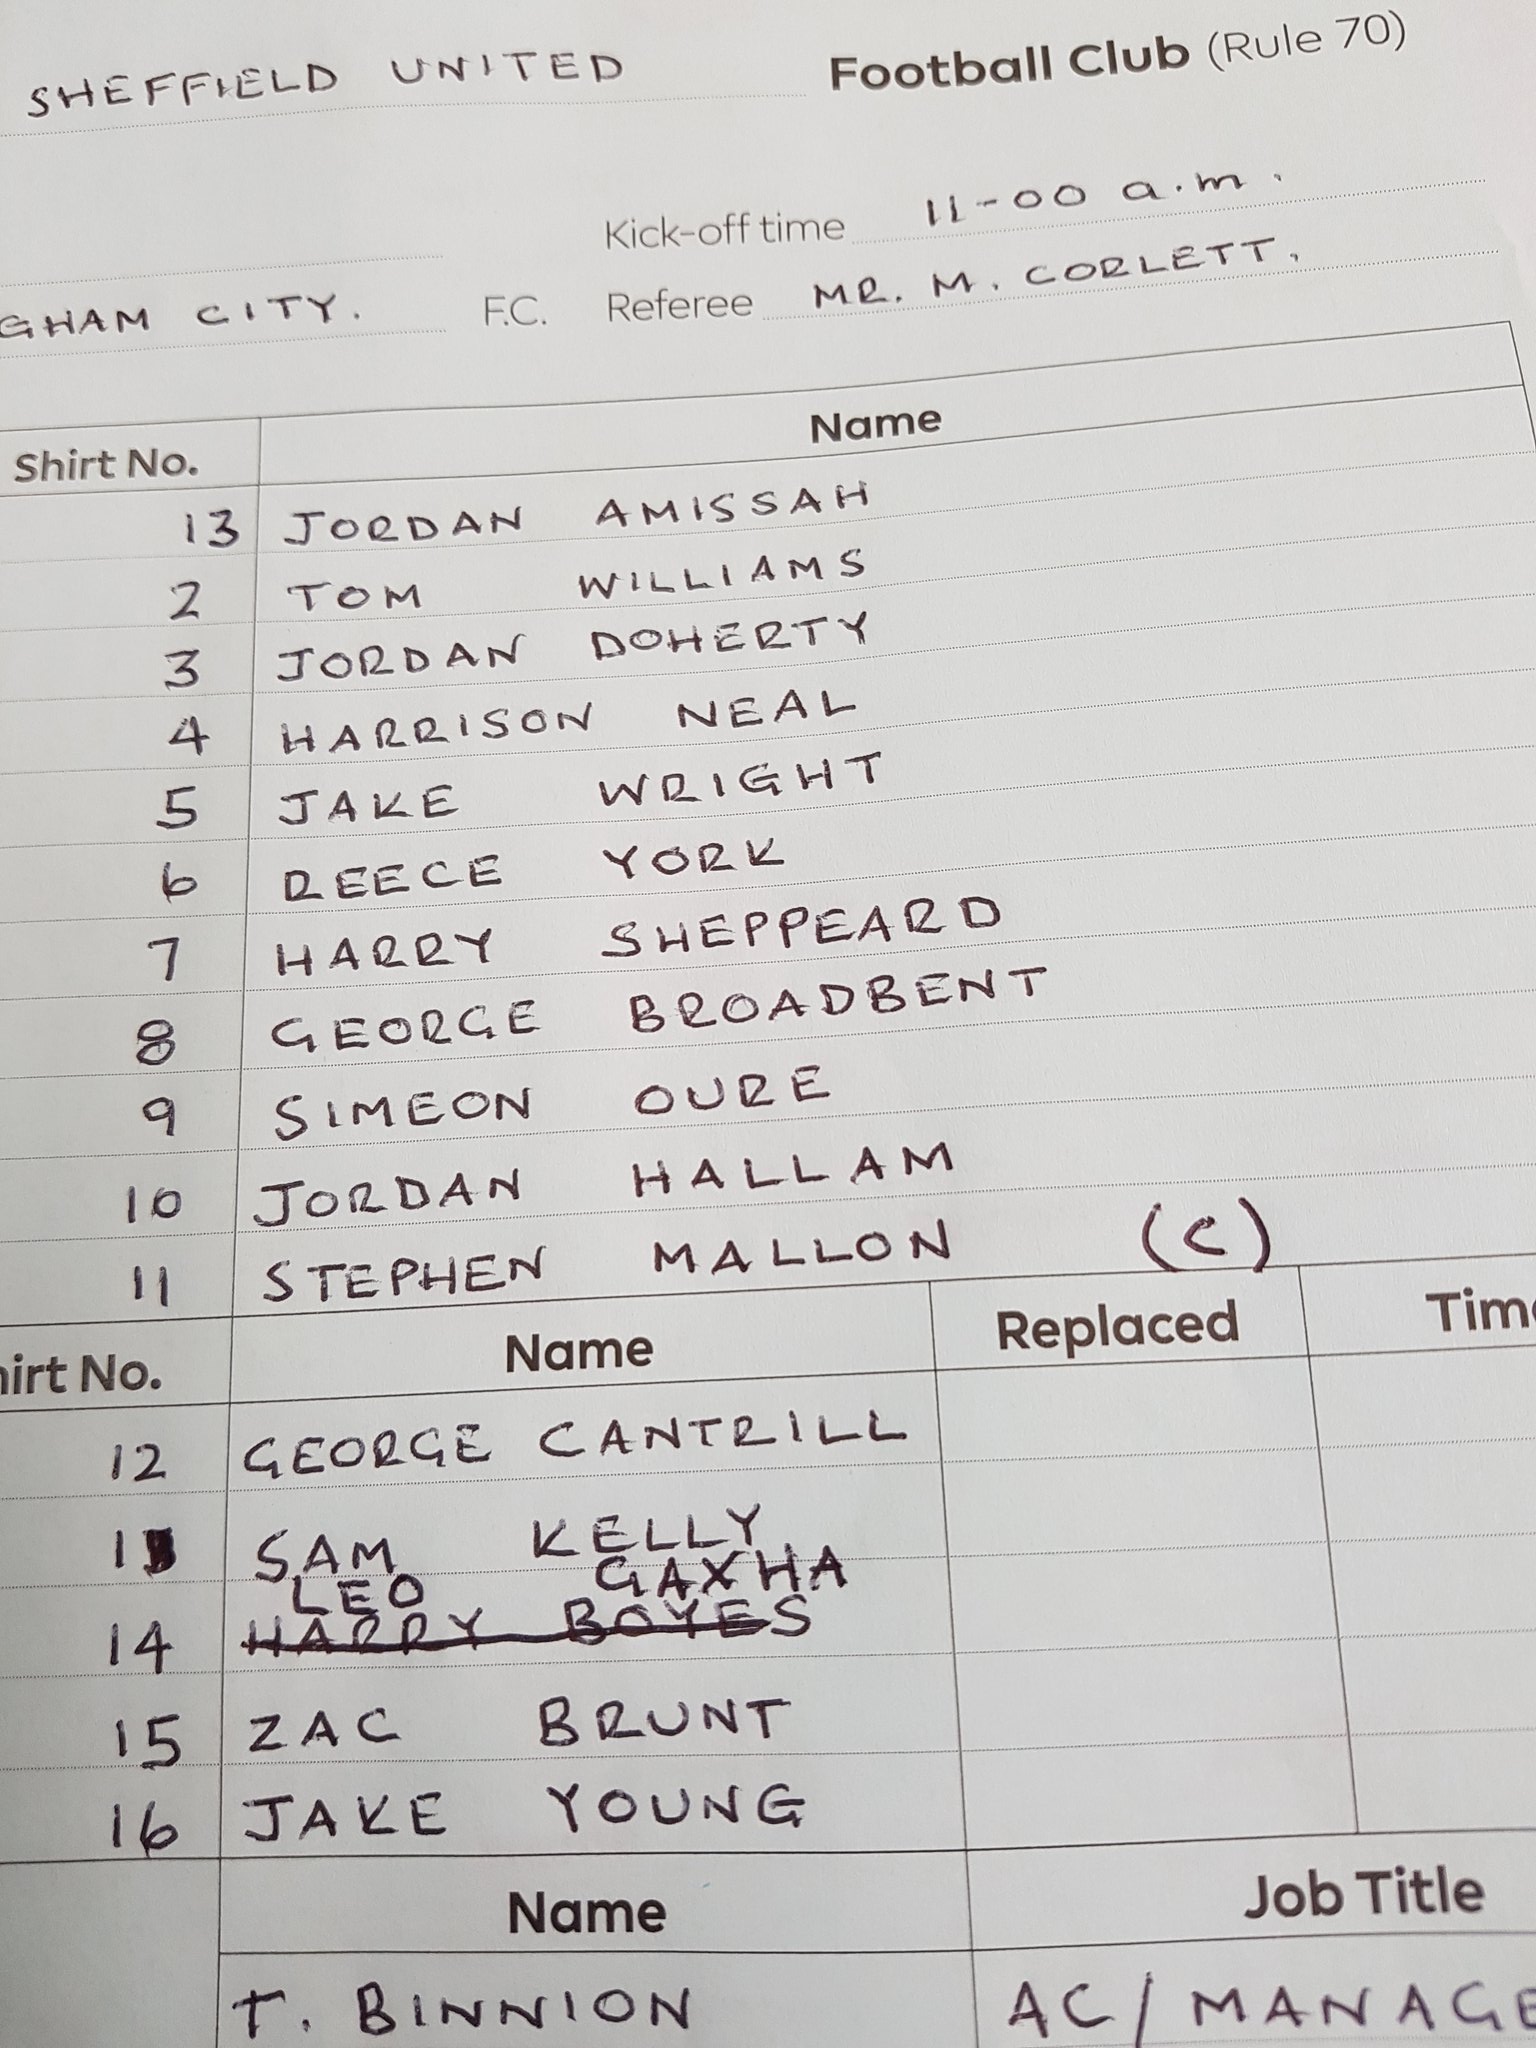 SHEFFIELD UNITED Football Club (Rule 70)
Kick-off time 11-00 a.m.
GHAM CITY. F.C. Referee MR. M. CORLETT.
Shirt No. Name
13 JORDAN AMISSAH
2 TOM WILLIAMS
3 JORDAN DOHERTY
4 HARRISON NEAL
5 JAKE WRIGHT
6 REECE YORK
7 HARRY SHEPPEARD
8 GEORGE BROADBENT
9 SIMEON OURE
10 JORDAN HALLAM
11 STEPHEN MALLON (C)
hirt No. Name Replaced Tim
12 GEORGE CANTRILL
1 SAM KELLY
LEO GAXHA
14 HARRY BOYES
15 ZAC BRUNT
16 JAKE YOUNG
Name Job Title
T. BINNION AC/MANAGE